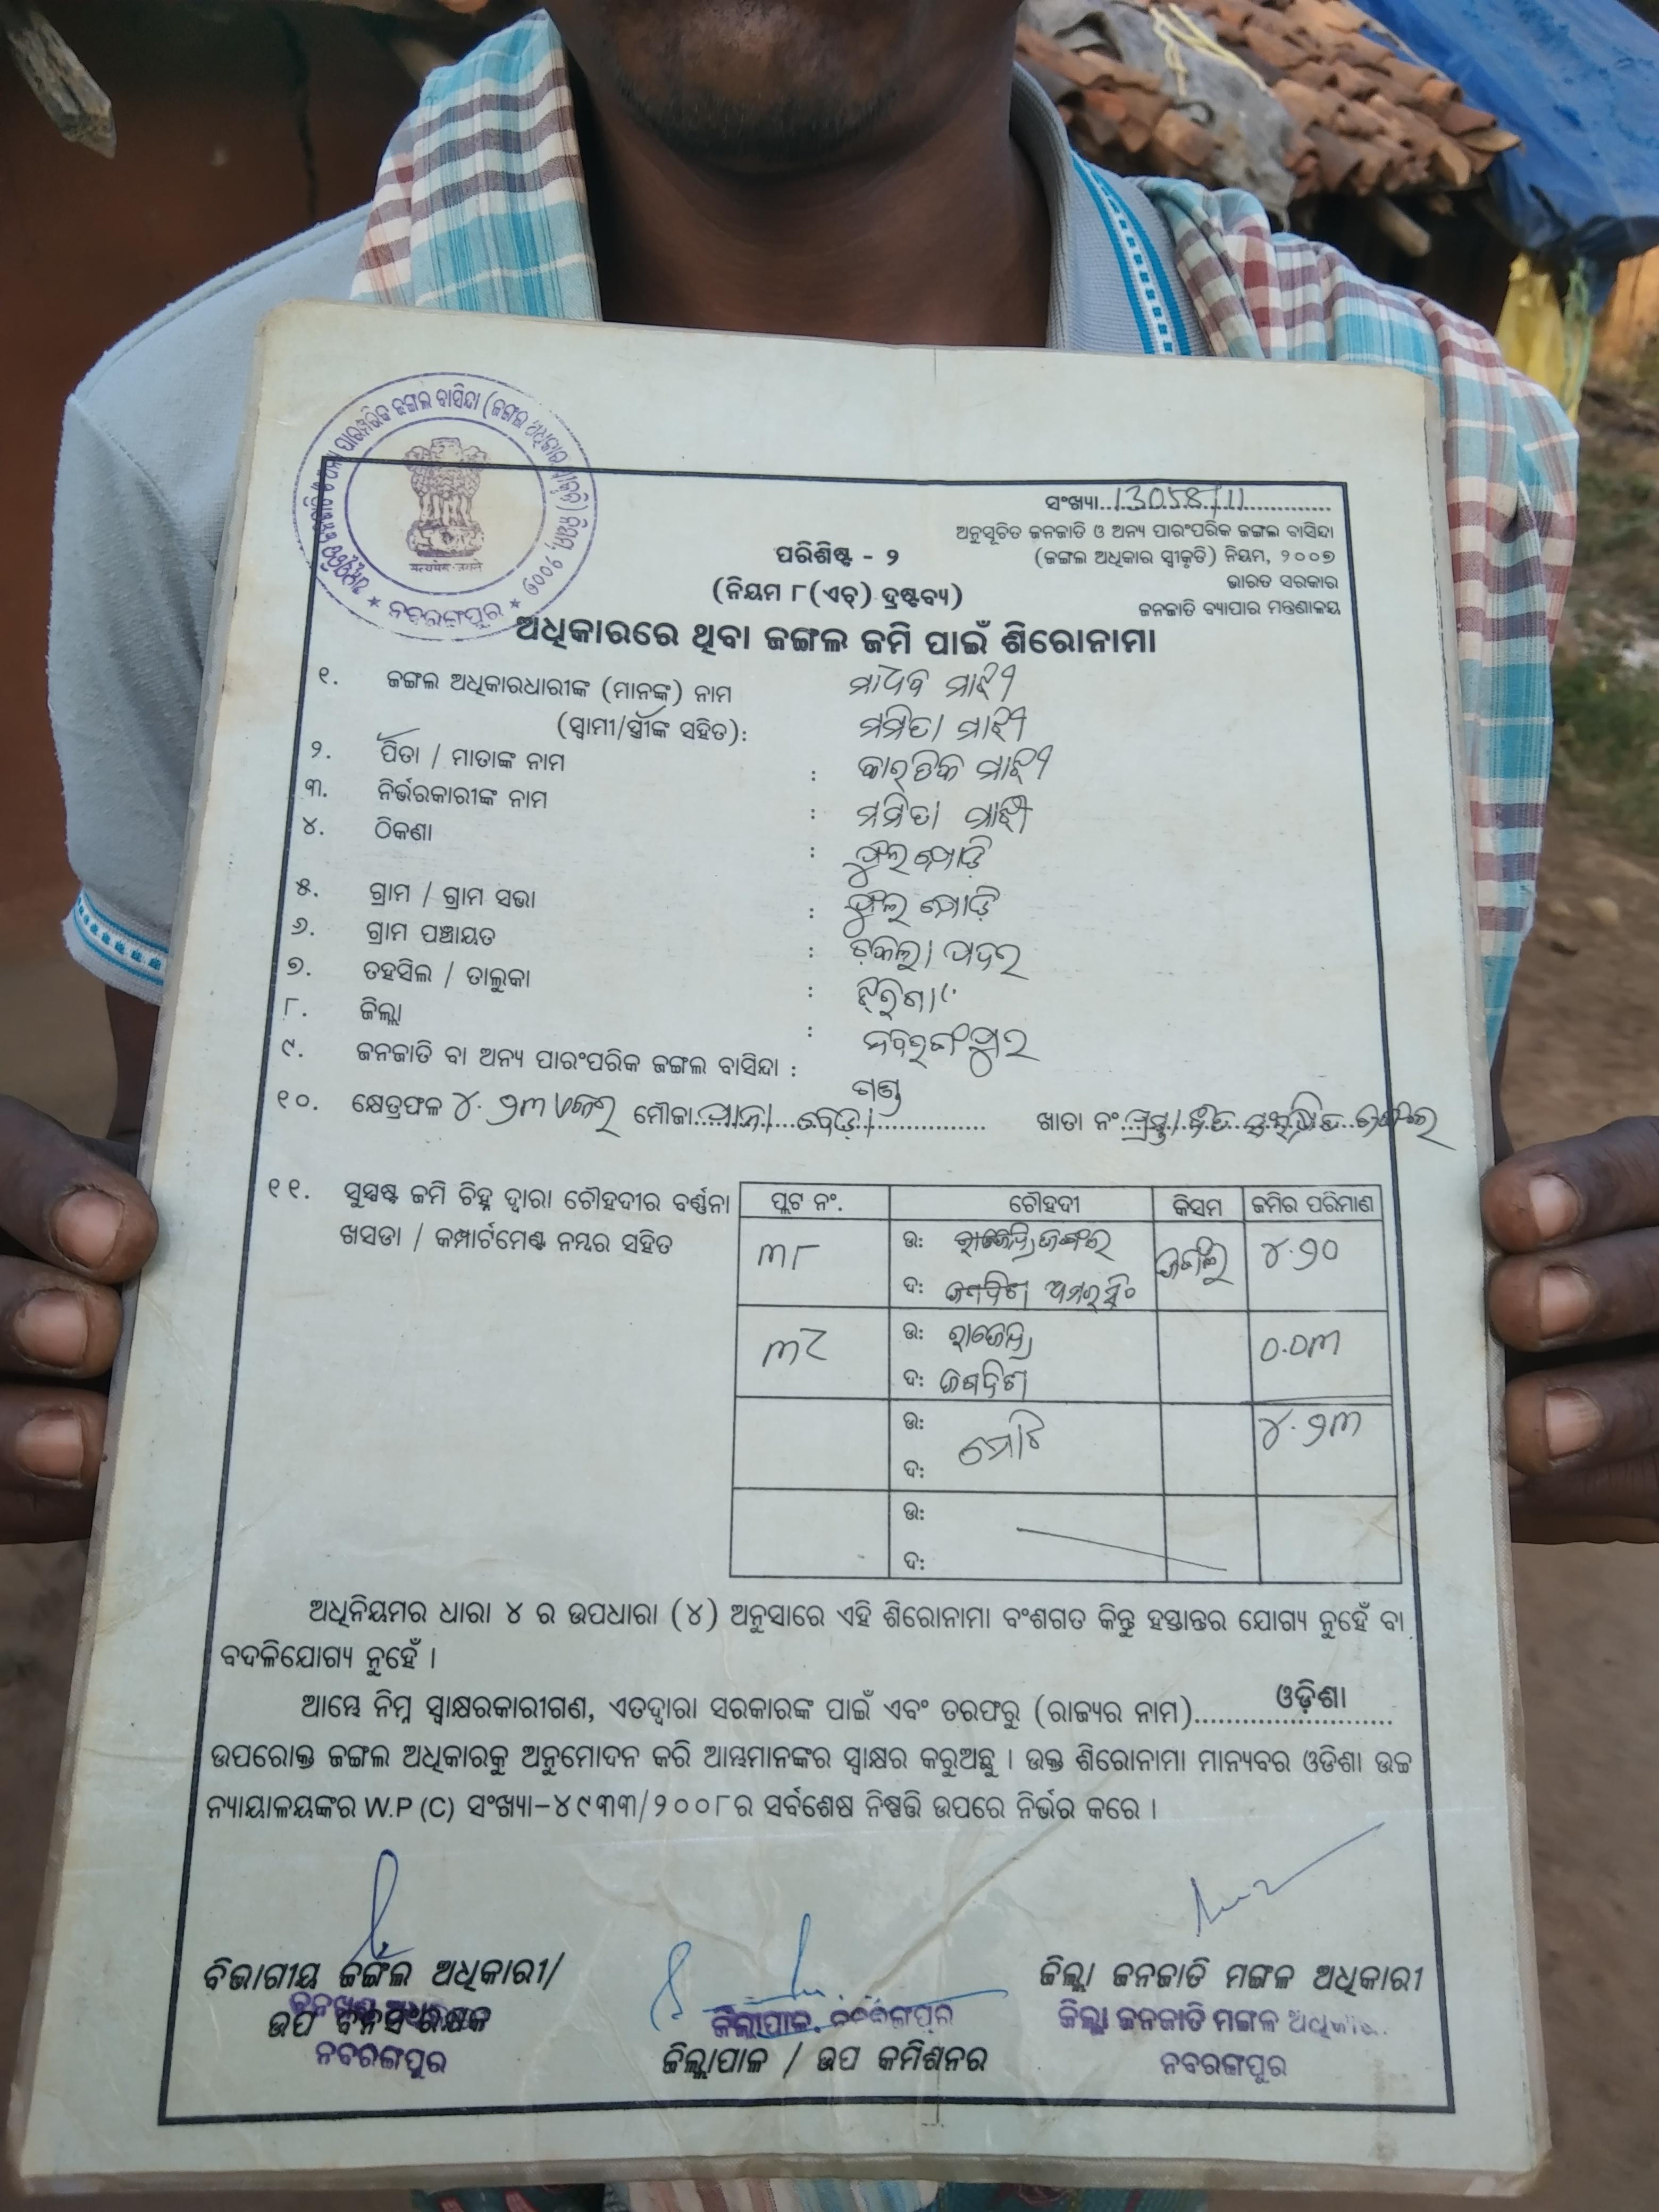 ସଂଖ୍ୟା..13058/11
ଅନୁସୂଚିତ ଜନଜାତି ଓ ଅନ୍ୟ ପାରଂପରିକ ଜଙ୍ଗଲ ବାସିନ୍ଦା
(ଜଙ୍ଗଲ ଅଧିକାର ସ୍ୱୀକୃତି) ନିୟମ, ୨୦୦୭
ଭାରତ ସରକାର
ଜନଜାତି ବ୍ୟାପାର ମନ୍ତ୍ରଣାଳୟ
ପରିଶିଷ୍ଟ - ୨
(ନିୟମ ୮(ଏଚ୍) ଦ୍ରଷ୍ଟବ୍ୟ)
ନବରଙ୍ଗପୁର
ଅଧିକାରରେ ଥିବା ଜଙ୍ଗଲ ଜମି ପାଇଁ ଶିରୋନାମା
୧. ଜଙ୍ଗଲ ଅଧିକାରଧାରୀଙ୍କ (ମାନଙ୍କ) ନାମ ମାଧବ ମାଝୀ
(ସ୍ୱାମୀ/ସ୍ତ୍ରୀଙ୍କ ସହିତ): ମମିତା ମାଝୀ
୨. ପିତା / ମାତାଙ୍କ ନାମ : କାର୍ତିକ ମାଝୀ
୩. ନିର୍ଭରକାରୀଙ୍କ ନାମ : ମମିତା ମାଝୀ
୪. ଠିକଣା : ଫୁଲମୋଡ଼ି
୫. ଗ୍ରାମ / ଗ୍ରାମ ସଭା : ଫୁଲମୋଡ଼ି
୬. ଗ୍ରାମ ପଞ୍ଚାୟତ : ଚକଲାପଦର
୭. ତହସିଲ / ତାଲୁକା : ଝରିଗାଁ
୮. ଜିଲ୍ଲା : ନବରଙ୍ଗପୁର
୯. ଜନଜାତି ବା ଅନ୍ୟ ପାରଂପରିକ ଜଙ୍ଗଲ ବାସିନ୍ଦା : ଗଣ୍ଡ
୧୦. କ୍ଷେତ୍ରଫଳ ୪.୨୩ ମୌଜା ପାନା ବେଡ଼ା ଖାତା ନଂ
୧୧. ସୁସ୍ପଷ୍ଟ ଜମି ଚିହ୍ନ ଦ୍ୱାରା ଚୌହଦୀର ବର୍ଣ୍ଣନା
ଖସଡା / କମ୍ପାର୍ଟମେଣ୍ଟ ନମ୍ବର ସହିତ
ପ୍ଲଟ ନଂ. ଚୌହଦୀ କିସମ ଜମିର ପରିମାଣ
୩୮ ଉ: ଜଙ୍ଗଲ ଜଙ୍ଗଲ ୪.୨୦
ଦ: ଜଗଦିଶ ଅମରସିଂ
୩୯ ଉ: ରାଜେନ୍ଦ୍ର ୦.୦୩
ଦ: ଜଗଦିଶ
ଉ: ମୋଟ ୪.୨୩
ଦ:
ଉ:
ଦ:
ଅଧିନିୟମର ଧାରା ୪ ର ଉପଧାରା (୪) ଅନୁସାରେ ଏହି ଶିରୋନାମା ବଂଶଗତ କିନ୍ତୁ ହସ୍ତାନ୍ତର ଯୋଗ୍ୟ ନୁହେଁ ବା
ବଦଳିଯୋଗ୍ୟ ନୁହେଁ ।
ଆମ୍ଭେ ନିମ୍ନ ସ୍ୱାକ୍ଷରକାରୀଗଣ, ଏତଦ୍ଦ୍ୱାରା ସରକାରଙ୍କ ପାଇଁ ଏବଂ ତରଫରୁ (ରାଜ୍ୟର ନାମ)......ଓଡ଼ିଶା......
ଉପରୋକ୍ତ ଜଙ୍ଗଲ ଅଧିକାରକୁ ଅନୁମୋଦନ କରି ଆମ୍ଭମାନଙ୍କର ସ୍ୱାକ୍ଷର କରୁଅଛୁ । ଉକ୍ତ ଶିରୋନାମା ମାନ୍ୟବର ଓଡିଶା ଉଚ୍ଚ
ନ୍ୟାୟାଳୟଙ୍କର W.P (C) ସଂଖ୍ୟା-୪୯୩୩/୨୦୦୮ର ସର୍ବଶେଷ ନିଷ୍ପତ୍ତି ଉପରେ ନିର୍ଭର କରେ ।
ବିଭାଗୀୟ ଜଙ୍ଗଲ ଅଧିକାରୀ/
ଉପ ବନସଂରକ୍ଷକ
ନବରଙ୍ଗପୁର
ଜିଲ୍ଲାପାଳ, ନବରଙ୍ଗପୁର
ଜିଲ୍ଲାପାଳ / ଉପ କମିଶନର
ଜିଲ୍ଲା ଜନଜାତି ମଙ୍ଗଳ ଅଧିକାରୀ
ଜିଲ୍ଲା ଜନଜାତି ମଙ୍ଗଳ ଅଧିକାରୀ
ନବରଙ୍ଗପୁର